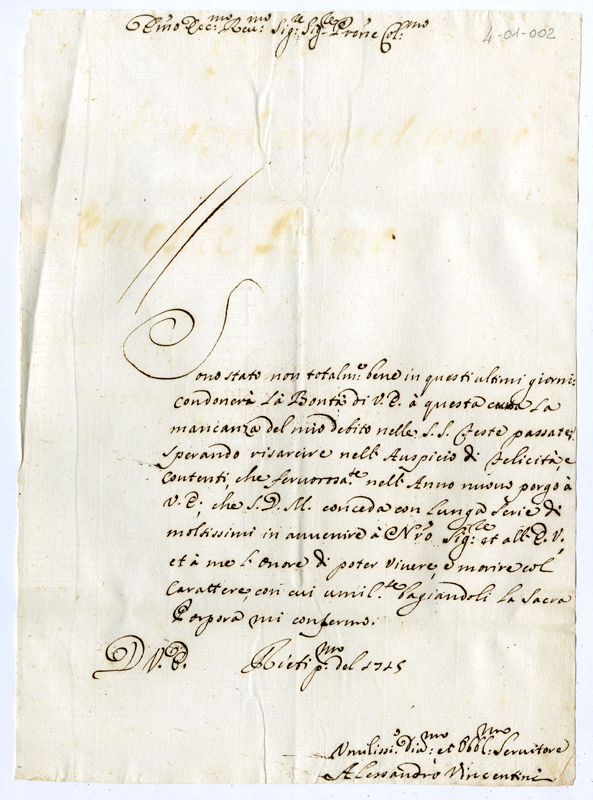 Emo Rec.mo Reu.mo Sig.re Sig.re Prōne Col.mo
4-01-002
Sono stato non totalm.e bene in questi ultimi giorni:
condonerà la Bontà di V. E. à questa causa la
mancanza del mio debito nelle S.S. Feste passate;
sperando risarcire nell'Auspicio di Felicità, e
contenti, che feruorosa.te nell'Anno nuouo porgo à
V. E.; che S. D. M. conceda con lunga serie di
moltissimi in auuenire à N'ro Sig.re et all'E. V.
et à me l'onore di poter viuere, e morire col
Carattere, con cui umil.te bagiandoli la Sacra
Porpora mi confermo.
D V. E. Rieti p.mo del 1715
Vmiliss.o Diu.mo et Obbl.mo Seruitore
Alessandro Vincentini